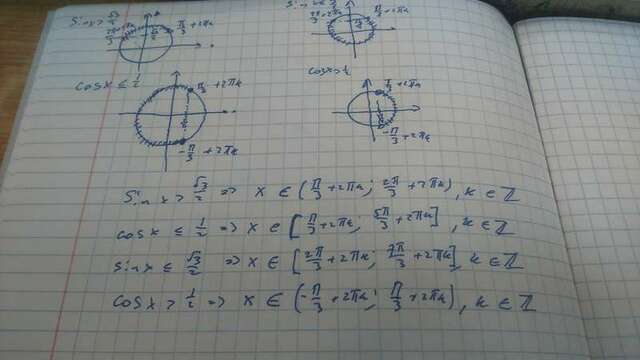 sin x > √3/2
2π/3 + 2πk
π/3 + 2πk
π/3 + 2πk
cos x ≤ 1/2
π/3 + 2πk
-π/3 + 2πk
cos x > 1/2
π/3 + 2πk
-π/3 + 2πk
sin x > √3/2 => x ∈ (π/3 + 2πk; 2π/3 + 2πk), k ∈ ℤ
cos x ≤ 1/2 => x ∈ [π/3 + 2πk; 5π/3 + 2πk], k ∈ ℤ
sin x ≤ √3/2 => x ∈ [2π/3 + 2πk; 7π/3 + 2πk], k ∈ ℤ
cos x > 1/2 => x ∈ (-π/3 + 2πk; π/3 + 2πk), k ∈ ℤ